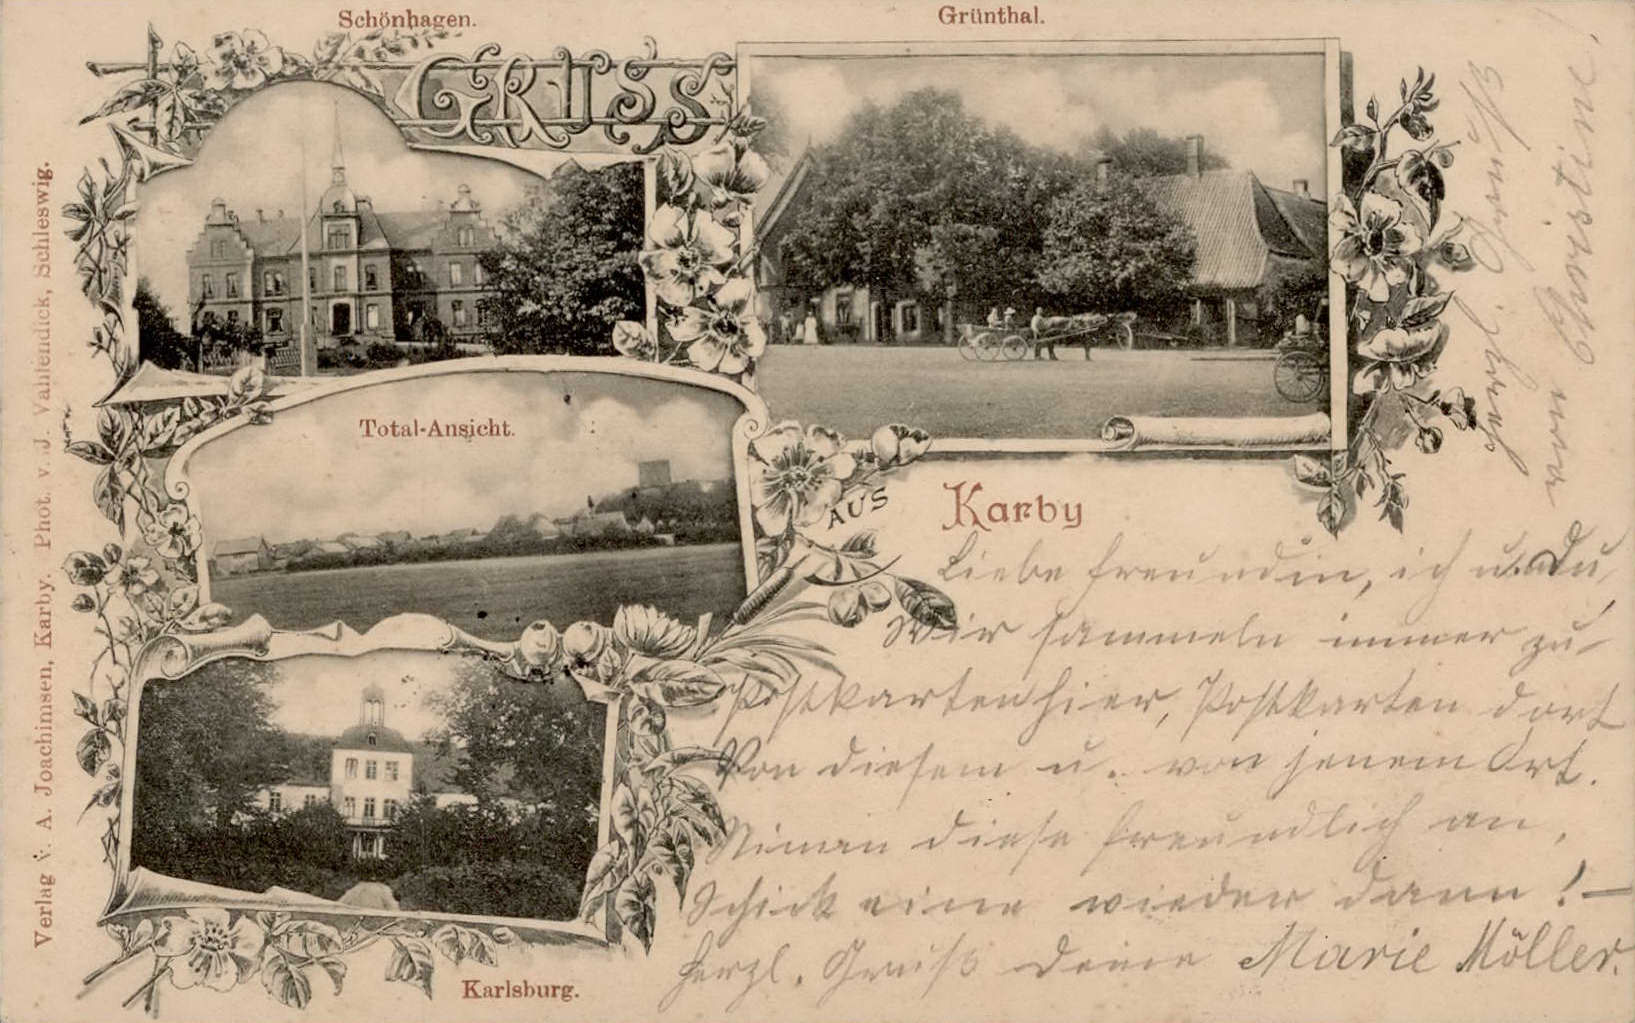 Schönhagen.
Grünthal.
GRUSS
Total-Ansicht.
AUS Karby
Karlsburg.
Verlag v. A. Joachimsen, Karby. Phot. v. J. Vahlendick, Schleswig.
Liebe Freundin, ich u. Du,
Wir sammeln immer zu-
Postkarten hier, Postkarten dort
Von diesem u. von jenem Ort.
Nimm diese freundlich an,
Schick eine wieder dann! –
Herzl. Gruß Deine Marie Möller.
Herzl. Gruß
von Christine!